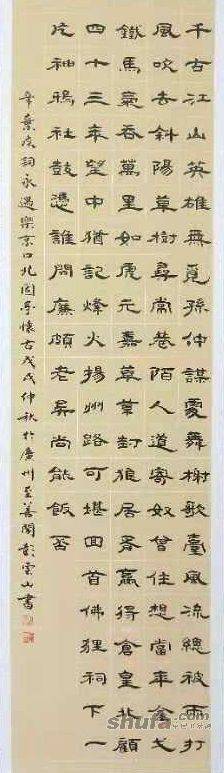 千古江山英雄無覓孫仲謀處舞榭歌臺風流總被雨打
風吹去斜陽草樹尋常巷陌人道寄奴曾住想當年金戈
鐵馬氣吞萬里如虎元嘉草草封狼居胥贏得倉皇北顧
四十三年望中猶記烽火揚州路可堪回首佛狸祠下一
片神鴉社鼓憑誰問廉頗老矣尚能飯否
辛棄疾詞永遇樂京口北固亭懷古戊戌仲秋於廣州至善閣彭雲山書
shufa.com